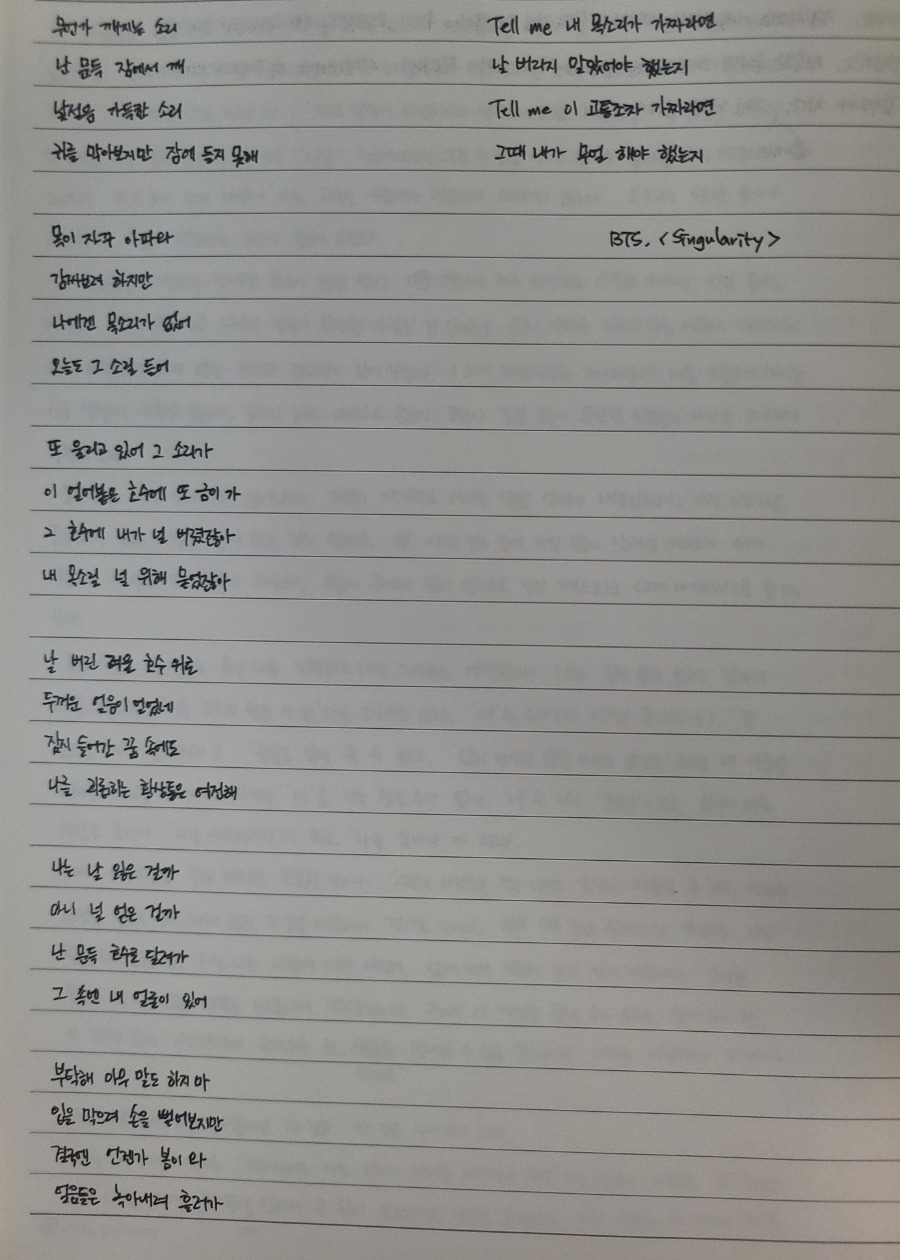 무언가 깨지는 소리
난 문득 잠에서 깨
낯설음 가득한 소리
귀를 막아보지만 잠에 들지 못해
목이 자꾸 아파와
감싸보려 하지만
나에겐 목소리가 없어
오늘도 그 소릴 들어
또 울리고 있어 그 소리가
이 얼어붙은 호수에 또 금이 가
그 호수에 내가 날 버렸잖아
내 목소릴 널 위해 묻었잖아
날 버린 겨울 호수 위로
두꺼운 얼음이 얼었네
잠시 들어간 꿈 속에도
나를 괴롭히는 환상통은 여전해
나는 날 잃은 걸까
아니 널 얻은 걸까
난 문득 호수로 달려가
그 속엔 내 얼굴이 있어
부탁해 아무 말도 하지 마
입을 막으려 손을 뻗어보지만
결국엔 언젠가 봄이 와
얼음들은 녹아내려 흘러가
Tell me 내 목소리가 가짜라면
날 버리지 말았어야 했는지
Tell me 이 고통조차 가짜라면
그때 내가 무얼 해야 했는지
BTS, <Singularity>